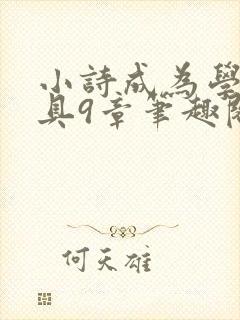 小詩成為學
具9章筆趣閣
何天雄